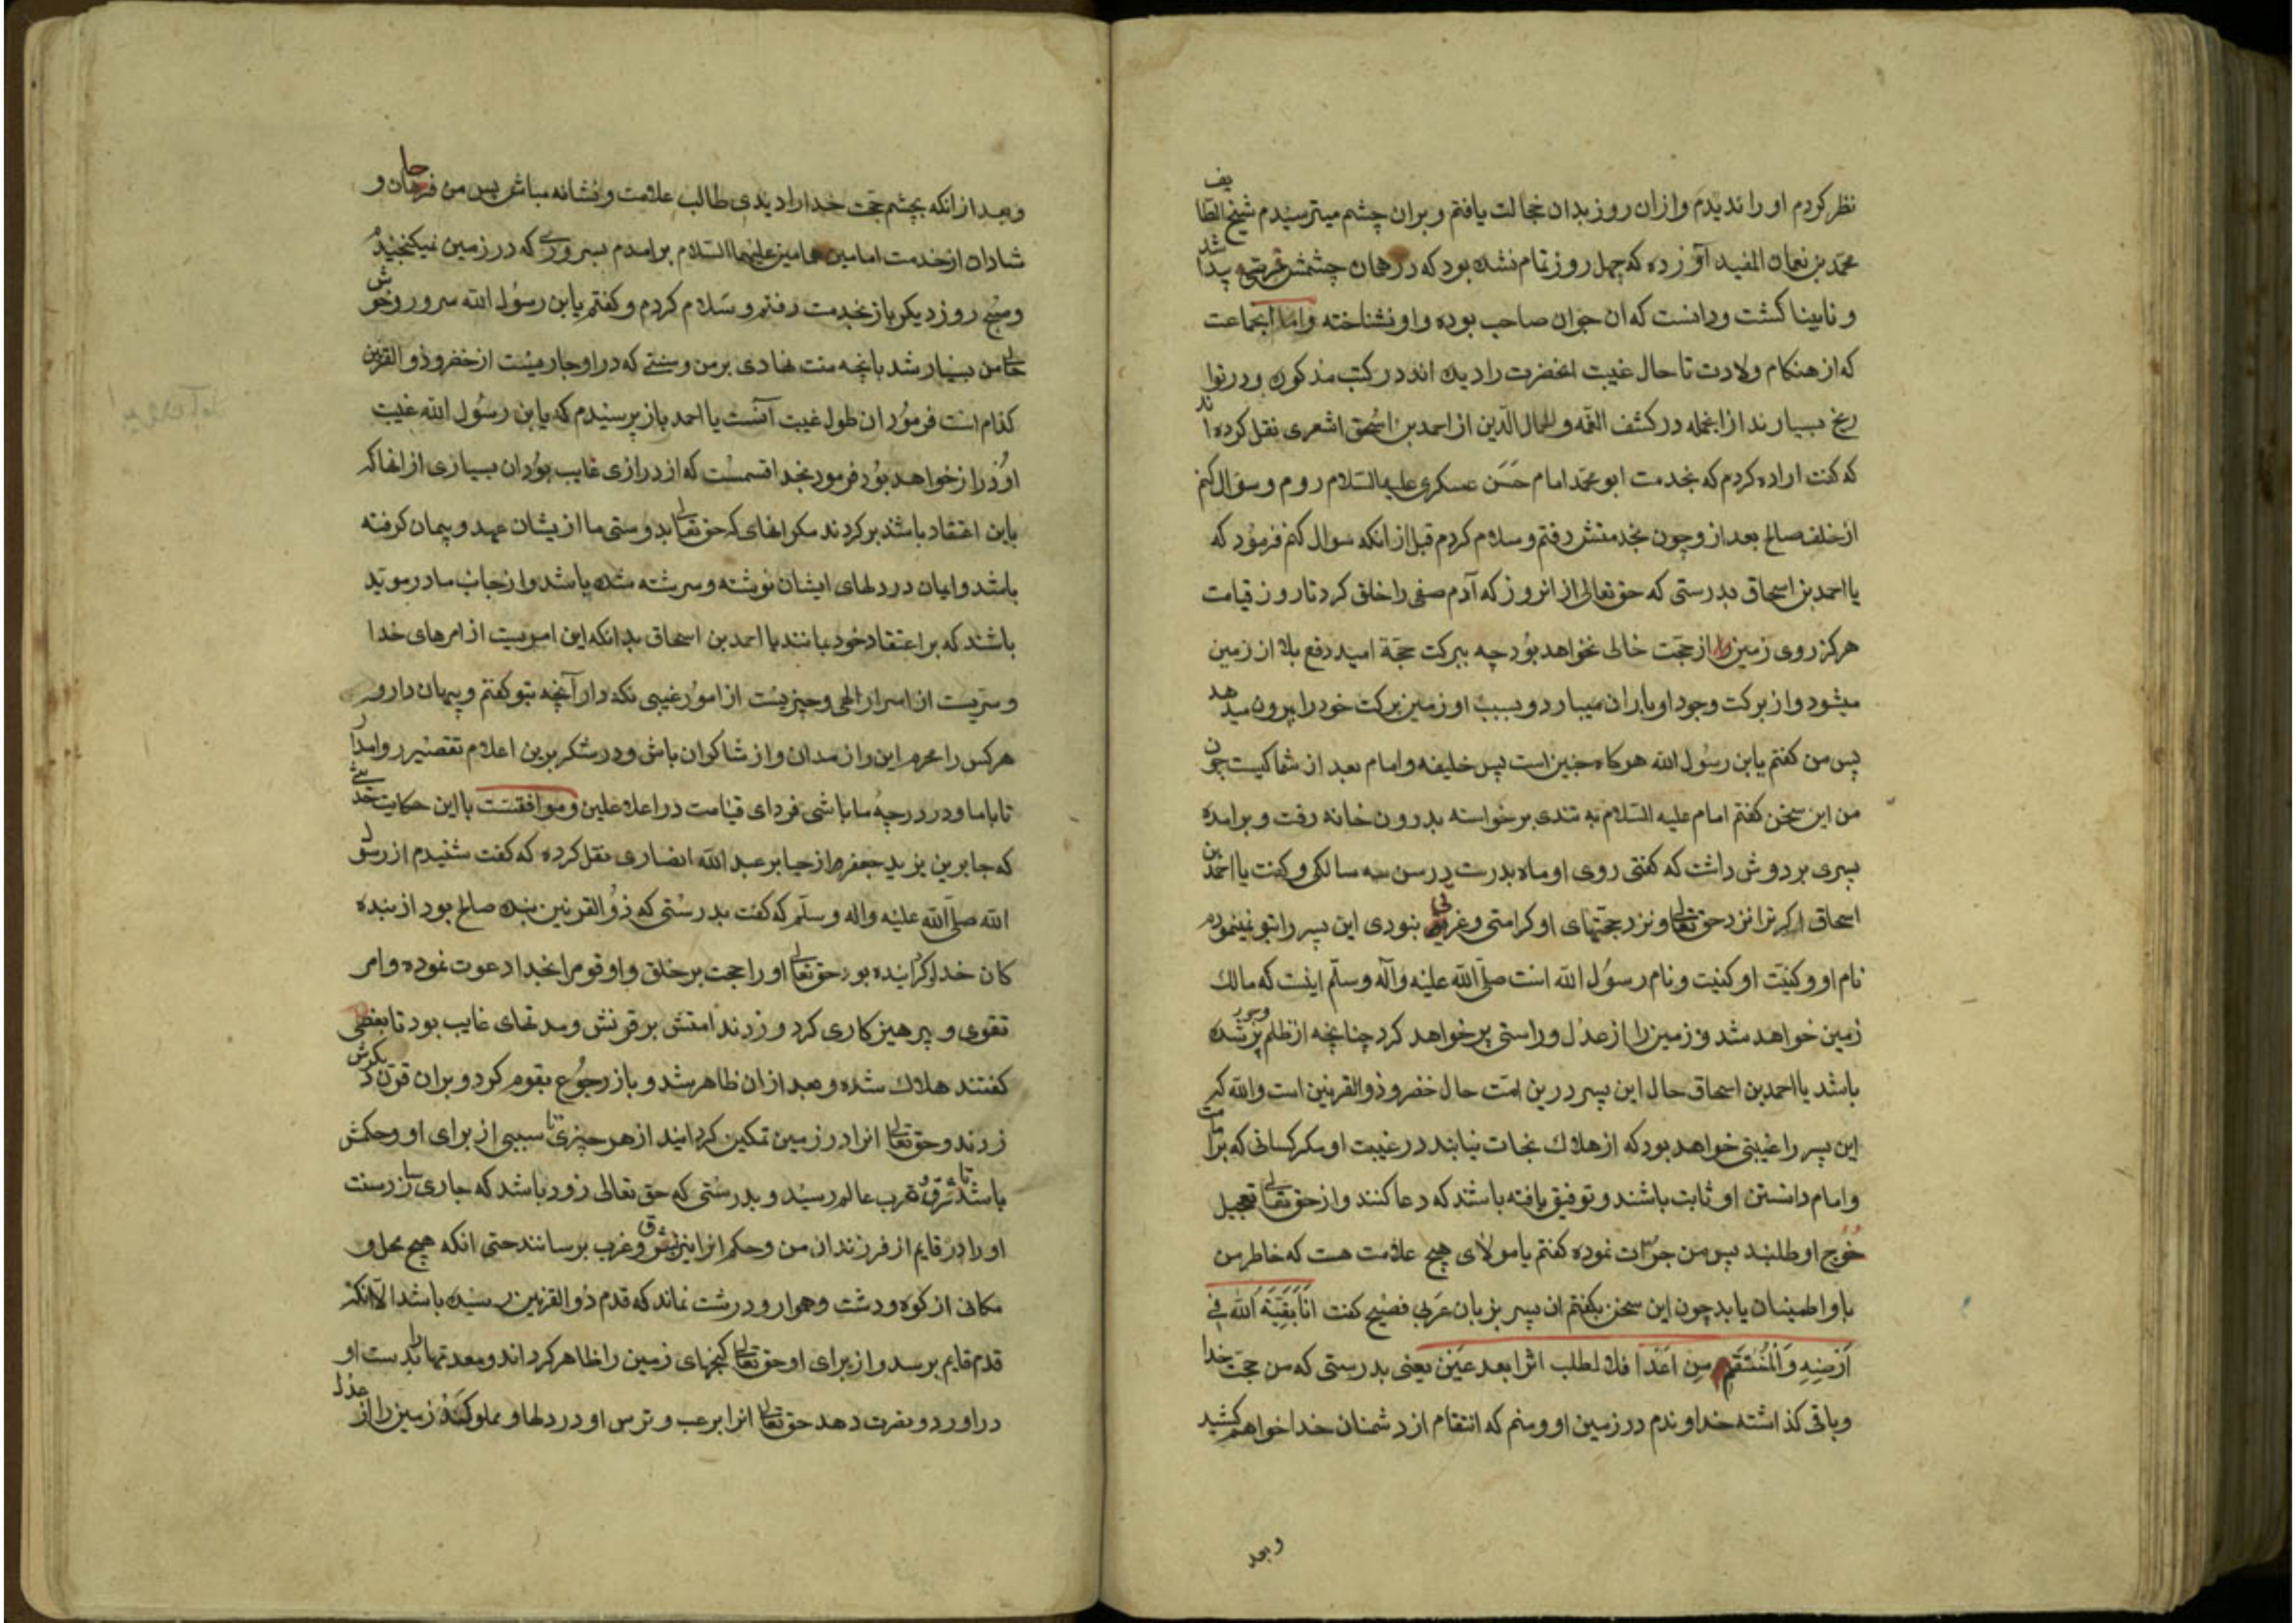 نظر کردم او را ندیدم و ازان روز بدان خجالت یافتم و بران چشم میترسیدم شیخ الطایف
محمد بن نعمان المفید آورده که چهل روز تمام نشده بود که در همان چشمش قرحه پیدا شد
و نابینا کشت و دانست که ان جوان صاحب بوده و او نشناخته و اما انجماعت
که از هنکام ولادت تا حال غیبت انحضرت را دیده اند در کتب مذکور و در توا
ریخ بسیارند از انجمله در کشف الغمه و اکمال الدین از احمد بن اسحق اشعری نقل کرده اند
که کفت اراده کردم که بخدمت ابو محمد امام حسن عسکری علیه السلام روم و سؤال کنم
از خلف صالح بعد از و چون بخدمتش رفتم و سلام کردم قبل از انکه سوال کنم فرمود که
یا احمد بن اسحاق بدرستی که حق تعالی از انروز که آدم صفی را خلق کرد تا روز قیامت
هرکز روی زمین را از حجت خالی نخواهد بود چه ببرکت حجة امید دفع بلا از زمین
میشود و از برکت وجود او باران میبارد و بسبب او زمین برکت خود را بیرون میدهد
پس من کفتم یابن رسول الله هرکاه چنین است پس خلیفه و امام بعد از شما کیست چون
من این سخن کفتم امام علیه السلام به تندی برخواسته بدرون خانه رفت و برامده
پسری بر دوش داشت که کفتی روی او ماه بدرست در سن سه سالکی و کفت یا احمد بن
اسحاق اکر ترا نزد حق تعالی و نزد حجتهای او کرامتی و غرتی نبودی این پسر را بتو نمینمودم
نام او و کنیت او کنیت و نام رسول الله است صلی الله علیه و آله و سلم اینست که مالک
زمین خواهد شد و زمین را از عدل و راستی پر خواهد کرد چنانچه از ظلم و جور پر شده
باشد یا احمد بن اسحاق حال این پسر درین امت حال خضر و ذوالقرنین است والله که
این پسر را غیبتی خواهد بود که از هلاک نجات نیابند در غیبت او مکر کسانی که بر امامت
و امام دانستن او ثابت باشند و توفیق یافته باشند که دعا کنند و از حق تعالی تعجیل
خروج او طلبند پس من جرات نموده کفتم یا مولای هیچ علامت هست که خاطر من
باو اطمینان یابد چون این سخن بکفتم ان پسر بزبان عربی فصیح کفت انا بقیة الله فی
ارضه والمنتقم من اعدا فلا لطلب اثرا بعد عین یعنی بدرستی که من حجت خدا
و باقی کذاشته خداوندم در زمین او و منم که انتقام از دشمنان خدا خواهم کشید
و بعد
و بعد از انکه بچشم حجت خدا را دیدی طالب علامت و نشانه مباش پس من فرحان و
شادان از خدمت امامین همامین علیهما السلام برامدم بسروری که در زمین نمیکنجیدم
و صبح روز دیکر باز بخدمت رفتم و سلام کردم و کفتم یابن رسول الله سرور و خوش
حالی من بسیار شد بانچه منت نهادی بر من و سنتی که در او جاریست از خضر و ذوالقرنین
کدام است فرمود ان طول غیبت آنست یا احمد باز پرسیدم که یابن رسول الله غیبت
او دراز خواهد بود فرمود بخدا قسمست که از درازی غایب بودن بسیاری از انها که
باین اعتقاد باشند برکردند مکر انهای که حق تعالی بدوستی ما ازیشان عهد و پیمان کرفته
باشد و ایمان در دلهای ایشان نوشته و سرشته شده باشد و از جانب ما در موید
باشند که بر اعتقاد خود بمانند یا احمد بن اسحاق بدانکه این امریست از امرهای خدا
و سریست از اسرار الهی و چیزیست از امور غیبی نکه دار آنچه بتو کفتم و پنهان دار و
هرکس را محرم این راز مدان و از شاکران باش و در شکر برین اعلام تقصیر روا مدار
تا با ما و در درجه ما باشی فردای قیامت در اعلا علیین و موافقست با این حکایت حدیثی
که جابر بن یزید جعفر از جابر عبد الله انصاری نقل کرده که کفت شنیدم از رسول
الله صلی الله علیه و اله و سلم که کفت بدرستی که ذوالقرنین بنده صالح بود از بنده
کان خدا کردانیده بود حق تعالی او را حجت بر خلق و او قوم را بخدا دعوت نموده و امر
تقوی و پرهیزکاری کرد و زدند امتش بر قرنش و مدتهای غایب بود تا بعضی
کفتند هلاک شده و بعد ازان ظاهر شد و باز رجوع بقوم کرد و بران قرن دیکرش
زدند و حق تعالی انرا در زمین تمکین کردانید از هر چیزی تا سببی از برای او و حکمش
باشد تا شرق و غرب عالم رسید و بدرستی که حق تعالی زود باشد که جاری سازد سنت
او را در قایم از فرزندان من و حکم انرا نیز بشرق و غرب برسانند حتی انکه هیچ محل و
مکانی از کوه و دشت و هموار و درشت نماند که قدم ذوالقرنین رسیده باشد الا آنکه
قدم قایم برسد و از برای او حق تعالی کنجهای زمین را ظاهر کرداند و معدنها را بدست او
دراورد و نصرت دهد حق تعالی انرا برعب و ترس او در دلها و مملو کند زمین را از عدل